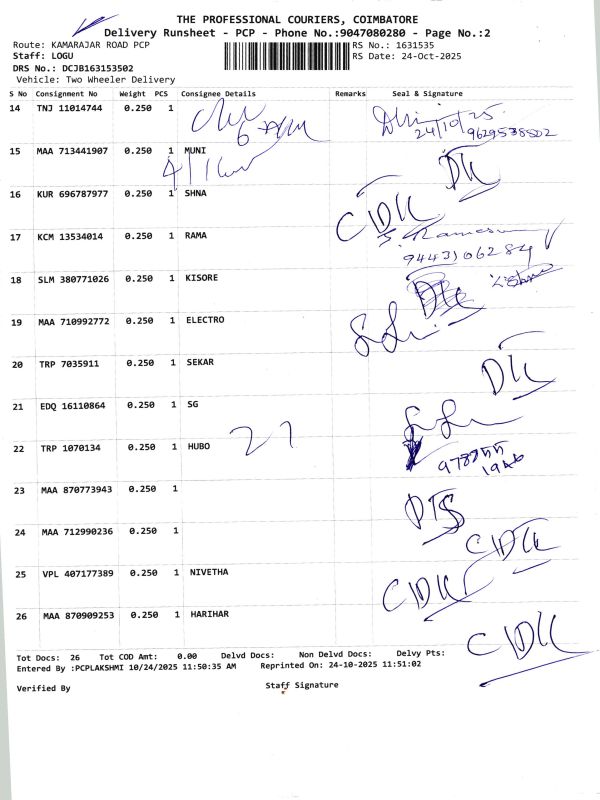 THE PROFESSIONAL COURIERS, COIMBATORE
Delivery Runsheet - PCP - Phone No.:9047080280 - Page No.:2
Route: KAMARAJAR ROAD PCP RS No.: 1631535
Staff: LOGU RS Date: 24-Oct-2025
DRS No.: DCJB163153502
Vehicle: Two Wheeler Delivery
S No Consignment No Weight PCS Consignee Details Remarks Seal & Signature
14 TNJ 11014744 0.250 1
24/10/25
9629538502
15 MAA 713441907 0.250 1 MUNI
16 KUR 696787977 0.250 1 SHNA
CDK
17 KCM 13534014 0.250 1 RAMA
9443106284
18 SLM 380771026 0.250 1 KISORE
19 MAA 710992772 0.250 1 ELECTRO
20 TRP 7035911 0.250 1 SEKAR
21 EDQ 16110864 0.250 1 SG
22 TRP 1070134 0.250 1 HUBO 27
23 MAA 870773943 0.250 1
24 MAA 712990236 0.250 1
CDK
25 VPL 407177389 0.250 1 NIVETHA
CDK
26 MAA 870909253 0.250 1 HARIHAR
CDK
Tot Docs: 26 Tot COD Amt: 0.00 Delvd Docs: Non Delvd Docs: Delvy Pts:
Entered By :PCPLAKSHMI 10/24/2025 11:50:35 AM Reprinted On: 24-10-2025 11:51:02
Verified By Staff Signature